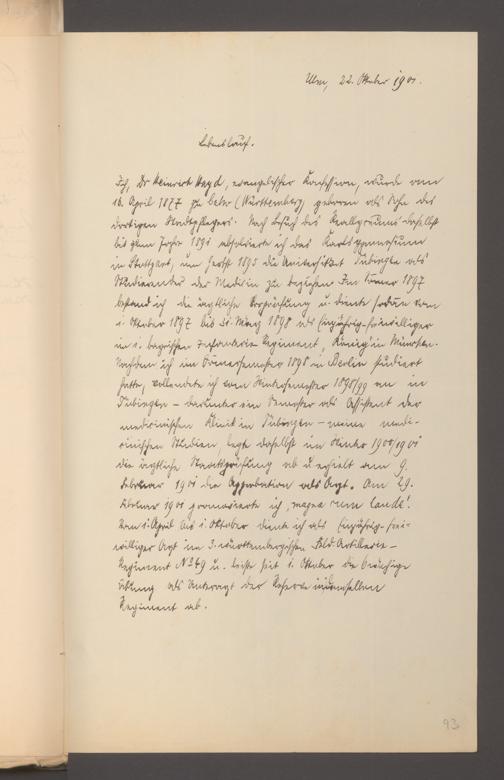 Ulm, 22. Oktober 1901.
Lebenslauf.
Ich, Dr Heinrich Hayd, evangelischer Konfession, wurde am
16. April 1877 zu (Württemberg) geboren als Sohn des
dortigen Stadtpflegers. Nach Besuch des daselbst
bis zum Jahre 1891 absolvierte ich das Karlsgymnasium
in Stuttgart, um Herbst 1895 die Universität Tübingen als
Studierender der Medizin zu beziehen. Im Sommer 1897
bestand ich die ärztliche Vorprüfung u. diente sodann vom
1. Oktober 1897 bis 31. März 1898 als Einjährig-Freiwilliger
im 1. bayrischen Infanterie Regiment, König in München.
Nachdem ich im Sommersemester 1898 in Berlin studiert
hatte, vollendete ich vom Wintersemester 1898/99 an in
Tübingen – darunter ein Semester als Assistent der
medicinischen Klinik in Tübingen – meine medi-
cinischen Studien, legte daselbst im Winter 1900/1901
die ärztliche Staatsprüfung ab u. erhielt am 9.
Februar 1901 die Approbation als Arzt. Am
Februar 1901 promovierte ich „magna cum laude".
Vom 1. April bis 1. Oktober diente ich als Einjährig-frei-
williger Arzt im 3. württembergischen Feld-Artillerie-
Regiment No 49 u. leiste seit 1. Oktober die
Übung als Unterarzt der Reserve in demselben
Regiment ab.
93